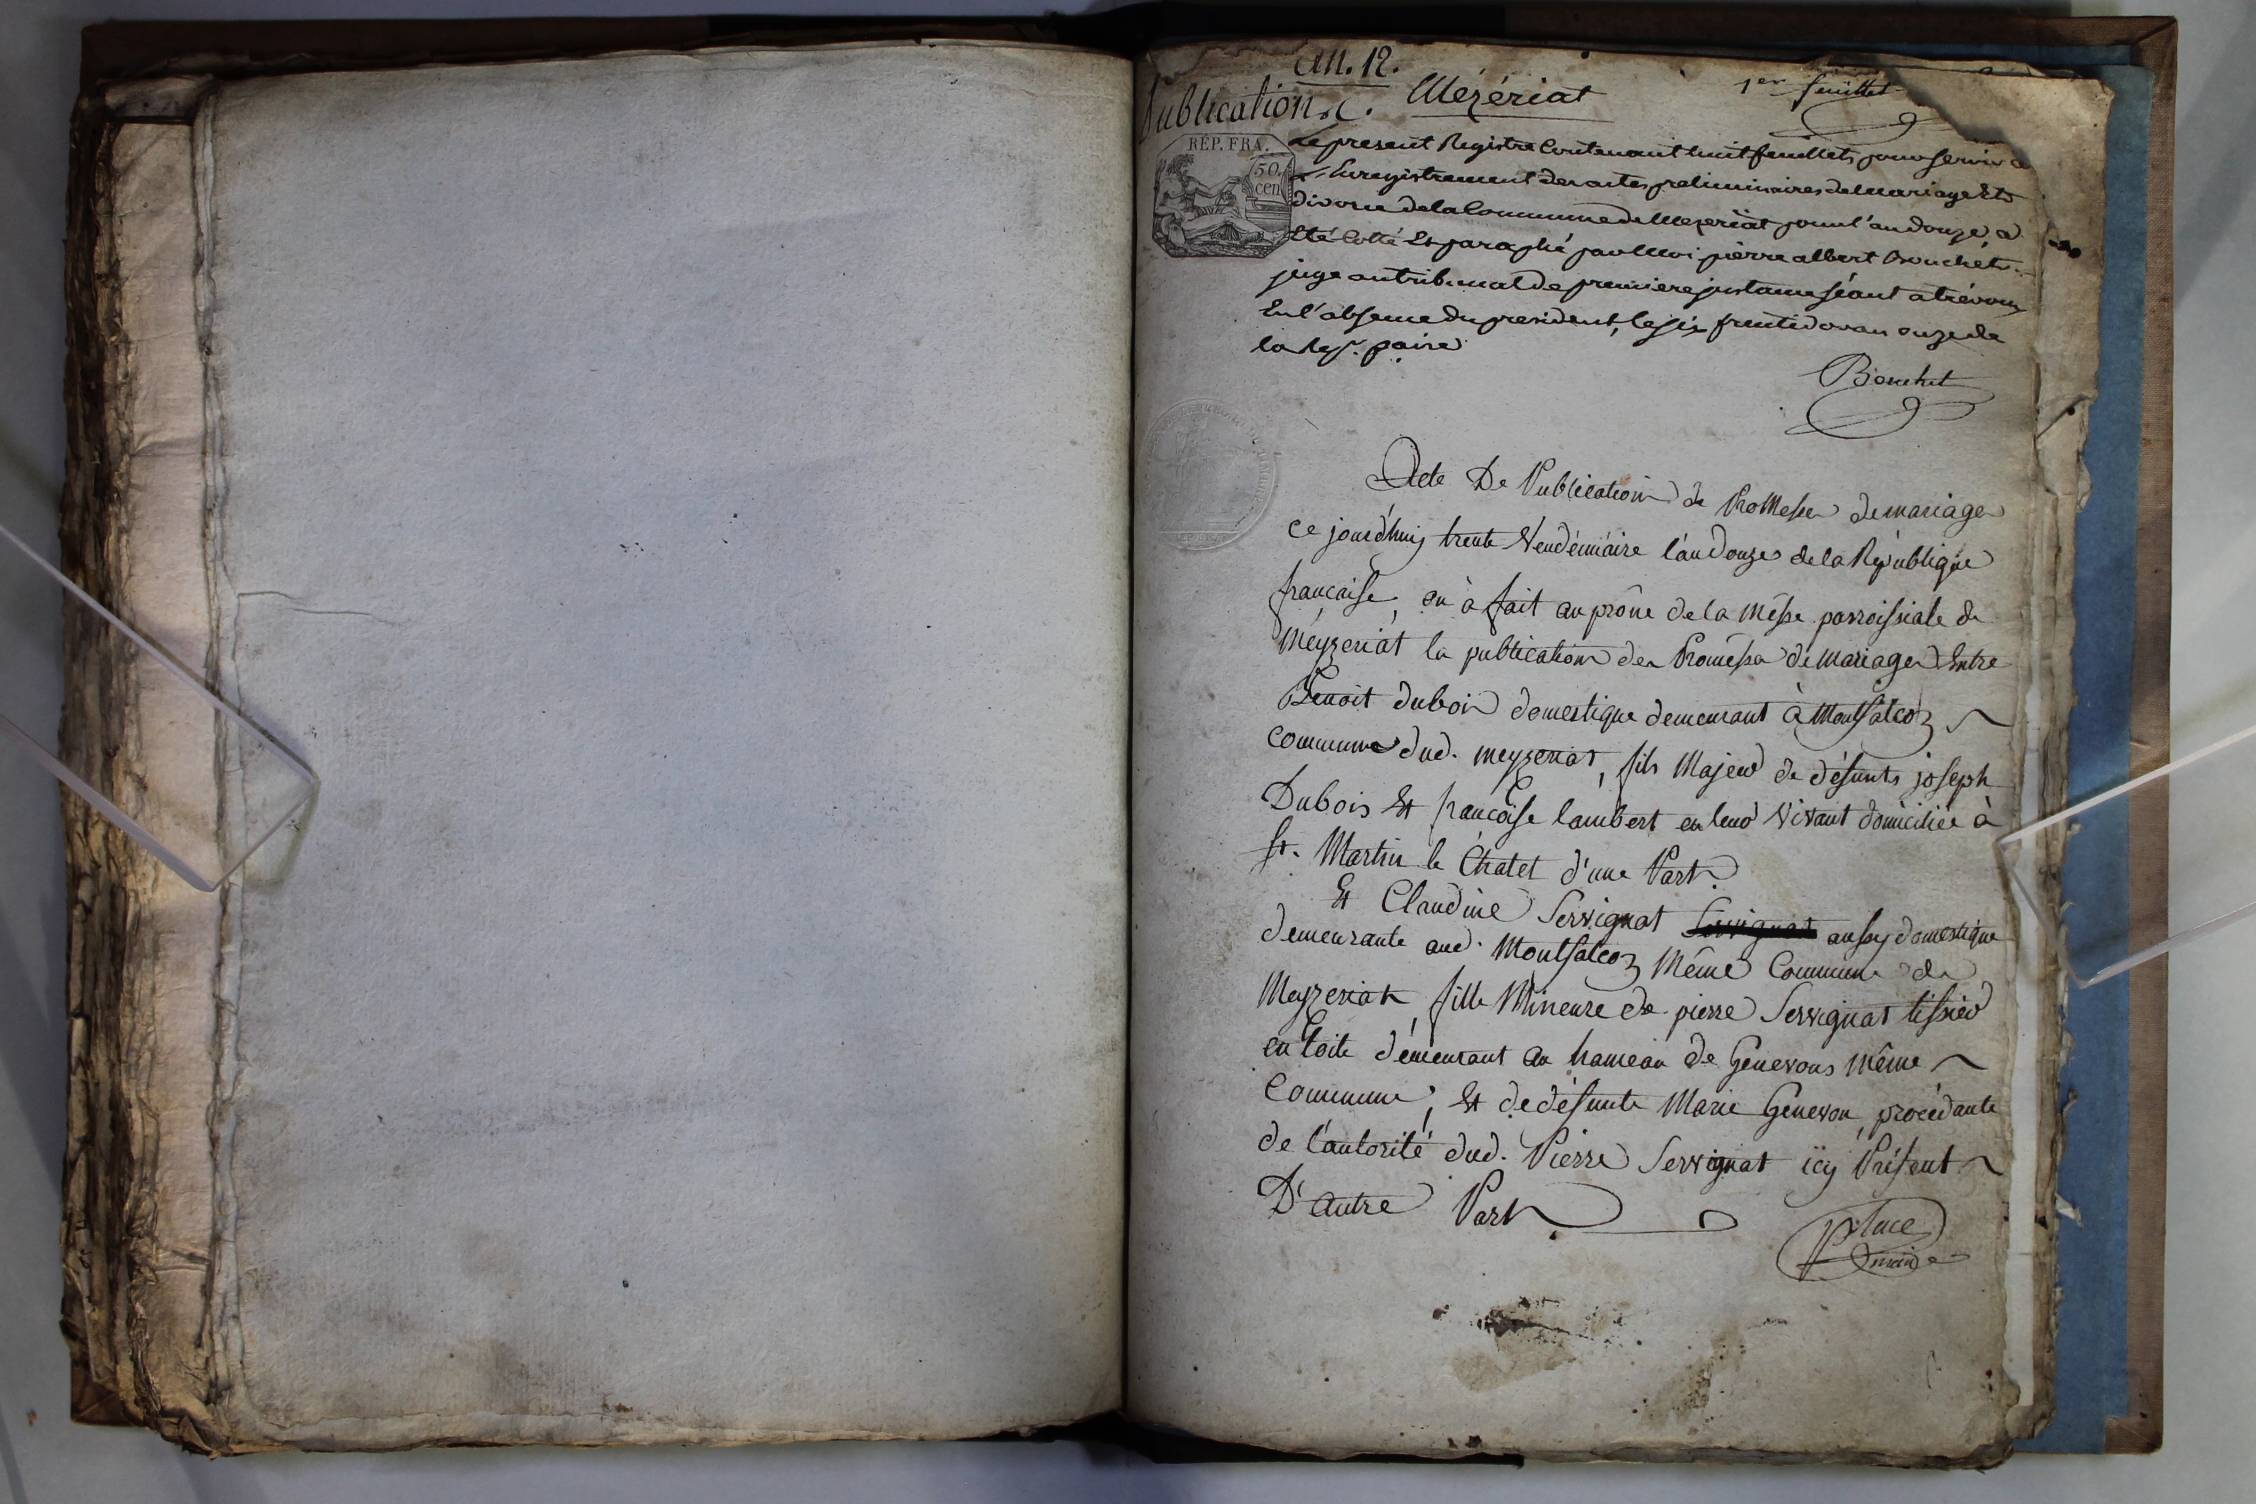 an. 12.
Publications. Mézériat
1er feuillet
RÉP. FRA.
50 cen
Le present Registre Contenant huit feuillets pour servir a
L'enregistrement des actes preliminaires de Mariage Et
divorce de la Commune de Mezeriat pour l'an douze, a
Eté Cotté Et paraphé par Moi pierre albert Bouchet
juge au tribunal de premiere justance séant a trévoux
En l'absence du president, le six fructidor an onze de
la Rep. paire
Bouchet
Acte De Publication de Promesse de mariage
Ce jourd'huy trente Vendémiaire l'an Douze de la République
française, on à fait au prône de la Messe parroissiale de
Meyzeriat la publication des Promesse de mariage Entre
Benoit dubois domestique demeurant à Montfalcoz
commune dud. meyzeriat, fils Majeur de défunts joseph
Dubois Et françoise lambert en leur Vivant domiciliés à
St. Martin le Chatel d'une Part.
Et Claudine Servignat Servignat aussy domestique
demeurante aud. Montfalcoz Même Commune de
Meyzeriat, fille Mineure de pierre Servignat tissier
en toile demeurant au hameau de Genevons même
Commune, Et de défunte Marie Genevon, procédante
de l'autorité dud. Pierre Servignat ïcy Présent
D'autre Part
Place
maire